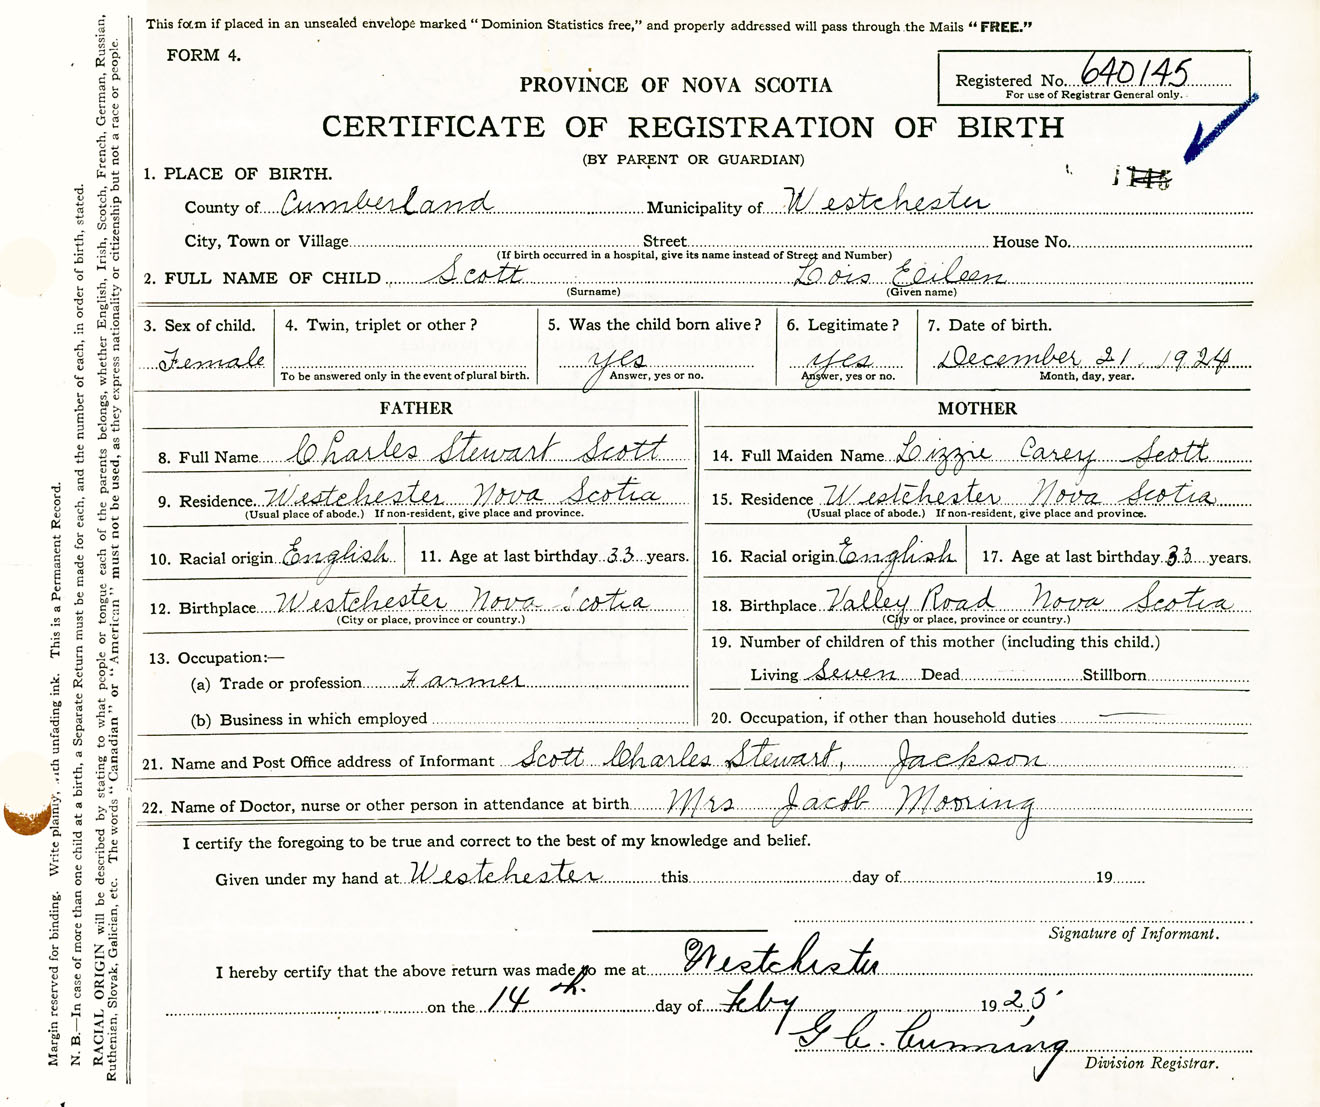 This form if placed in an unsealed envelope marked "Dominion Statistics free," and properly addressed will pass through the Mails "FREE."
FORM 4.
Registered No. 640145
For use of Registrar General only.
PROVINCE OF NOVA SCOTIA
CERTIFICATE OF REGISTRATION OF BIRTH
(BY PARENT OR GUARDIAN)
1145
1. PLACE OF BIRTH.
County of Cumberland Municipality of Westchester
City, Town or Village Street House No.
(If birth occurred in a hospital, give its name instead of Street and Number)
2. FULL NAME OF CHILD Scott Lois Eileen
(Surname) (Given name)
3. Sex of child. 4. Twin, triplet or other? 5. Was the child born alive? 6. Legitimate? 7. Date of birth.
Female yes yes December 21 1924
To be answered only in the event of plural birth. Answer, yes or no. Answer, yes or no. Month, day, year.
FATHER
8. Full Name Charles Stewart Scott
9. Residence Westchester Nova Scotia
(Usual place of abode.) If non-resident, give place and province.
10. Racial origin English 11. Age at last birthday 33 years.
12. Birthplace Westchester Nova Scotia
(City or place, province or country.)
13. Occupation:—
(a) Trade or profession Farmer
(b) Business in which employed
MOTHER
14. Full Maiden Name Lizzie Carey Scott
15. Residence Westchester Nova Scotia
(Usual place of abode.) If non-resident, give place and province.
16. Racial origin English 17. Age at last birthday 33 years.
18. Birthplace Valley Road Nova Scotia
(City or place, province or country.)
19. Number of children of this mother (including this child.)
Living Seven Dead Stillborn
20. Occupation, if other than household duties —
21. Name and Post Office address of Informant Scott Charles Stewart, Jackson
22. Name of Doctor, nurse or other person in attendance at birth Mrs Jacob Mooring
I certify the foregoing to be true and correct to the best of my knowledge and belief.
Given under my hand at Westchester this day of 19
Signature of Informant.
I hereby certify that the above return was made to me at Westchester
on the 14th. day of Feby 1925
G C. Cumming
Division Registrar.
Margin reserved for binding. Write plainly, with unfading ink. This is a Permanent Record.
N. B.—In case of more than one child at a birth, a Separate Return must be made for each, and the number of each, in order of birth, stated.
RACIAL ORIGIN will be described by stating to what people or tongue each of the parents belongs, whether English, Irish, Scotch, French, German, Russian,
Ruthenian, Slovak, Galician, etc. The words "Canadian" or "American" must not be used, as they express nationality or citizenship but not a race or people.